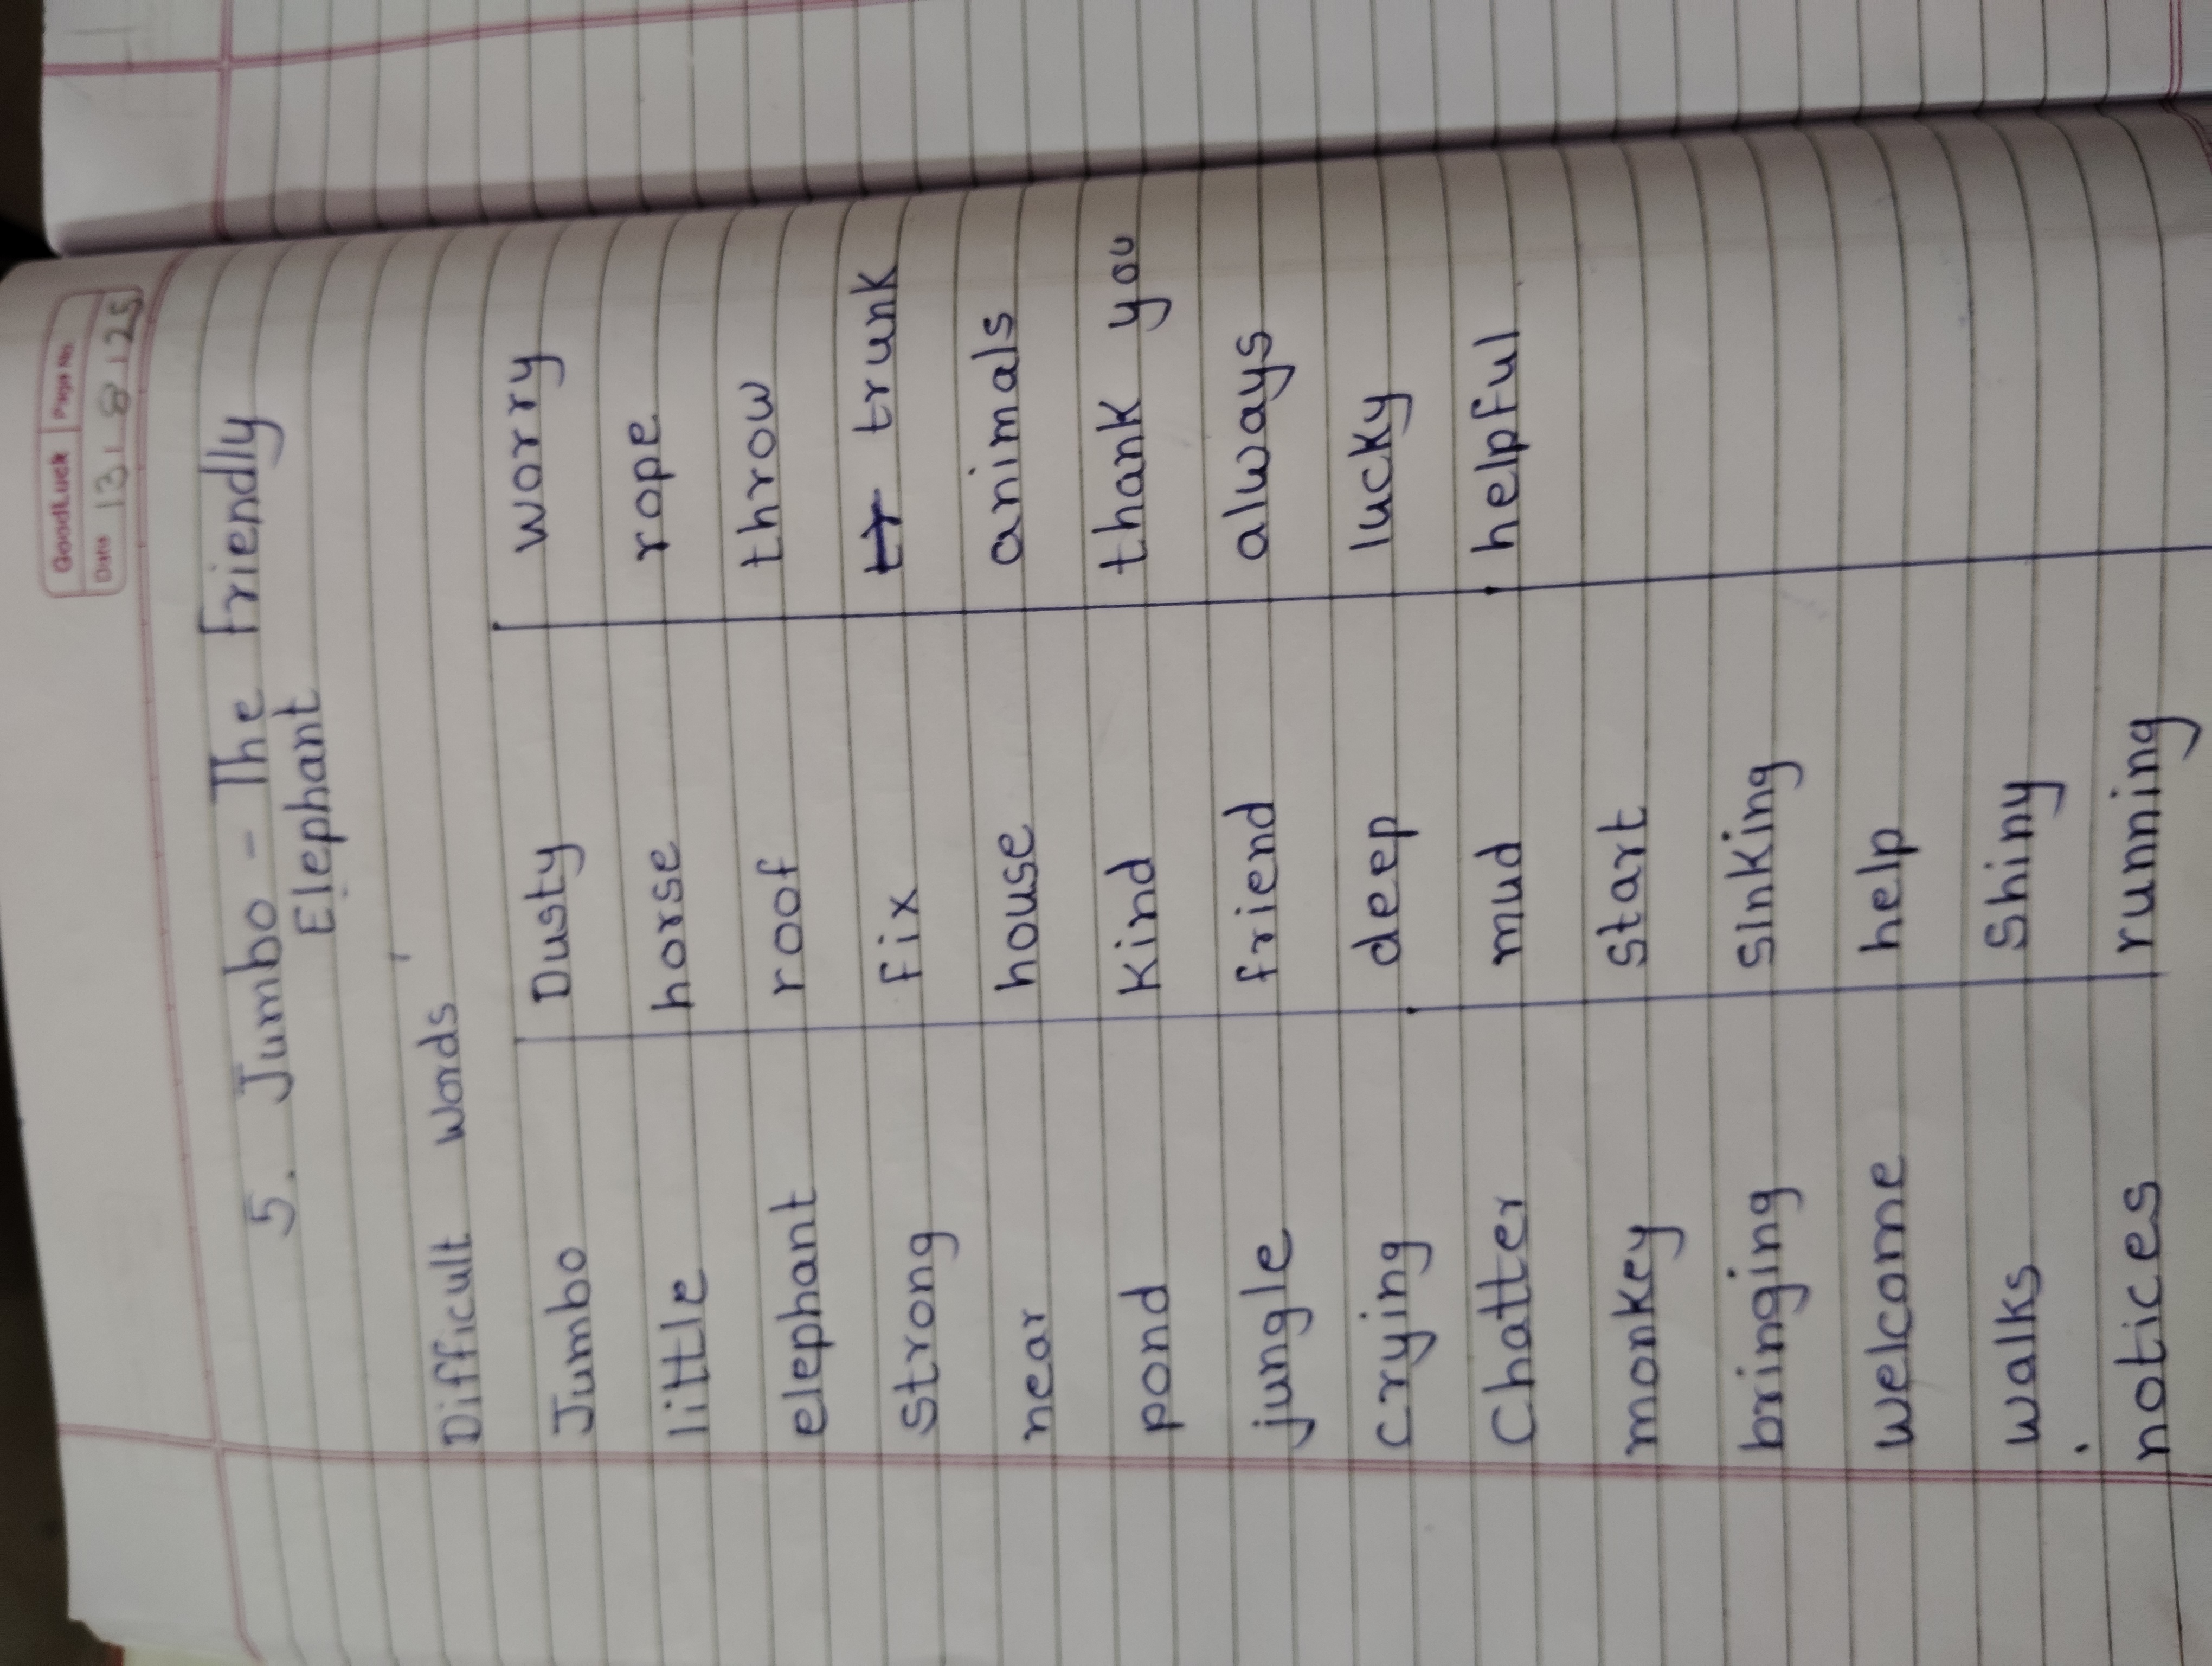 GoodLuck Page No.
Date 13 8 25
5. Jumbo - The Friendly
Elephant
Difficult words
Jumbo Dusty worry
little horse rope
elephant roof throw
strong fix tr trunk
near house animals
pond kind thank you
jungle friend always
crying deep lucky
Chatter mud helpful
monkey start
bringing sinking
welcome help
walks Shiny
notices running